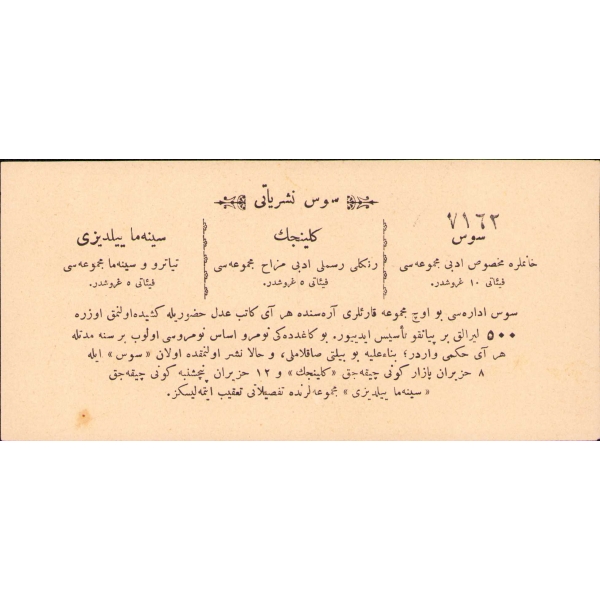 سوس نشریاتی
۷۱٦۲
سوس
خانملره مخصوص ادبی مجموعه‌سی
فیئاتی ۱۰ غروشدر.
كلینجك
رنكلی رسملی ادبی مزاح مجموعه‌سی
فیئاتی ٥ غروشدر.
سینه‌ما ییلدیزی
تیاترو و سینه‌ما مجموعه‌سی
فیئاتی ٥ غروشدر.
سوس اداره‌سی بو اوچ مجموعه قارئلری آره‌سنده هر آی كاتب عدل حضوریله كشیده اولنمق اوزره
٥۰۰ لیرالق بر پیانقو تأسیس ایدییور. بو كاغدده‌كی نومرو اساس نومروسی اولوب بر سنه مدتله
هر آی حكمی واردر؛ بناءعلیه بو بیلتی صاقلاملی، و حالا نشر اولنمقده اولان «سوس» ایله
۸ حزیران پازار كونی چیقه‌جق «كلینجك» و ۱۲ حزیران پنجشنبه كونی چیقه‌جق
«سینه‌ما ییلدیزی» مجموعه‌لرنده تفصیلاتی تعقیب ایتمه‌لیسكز.